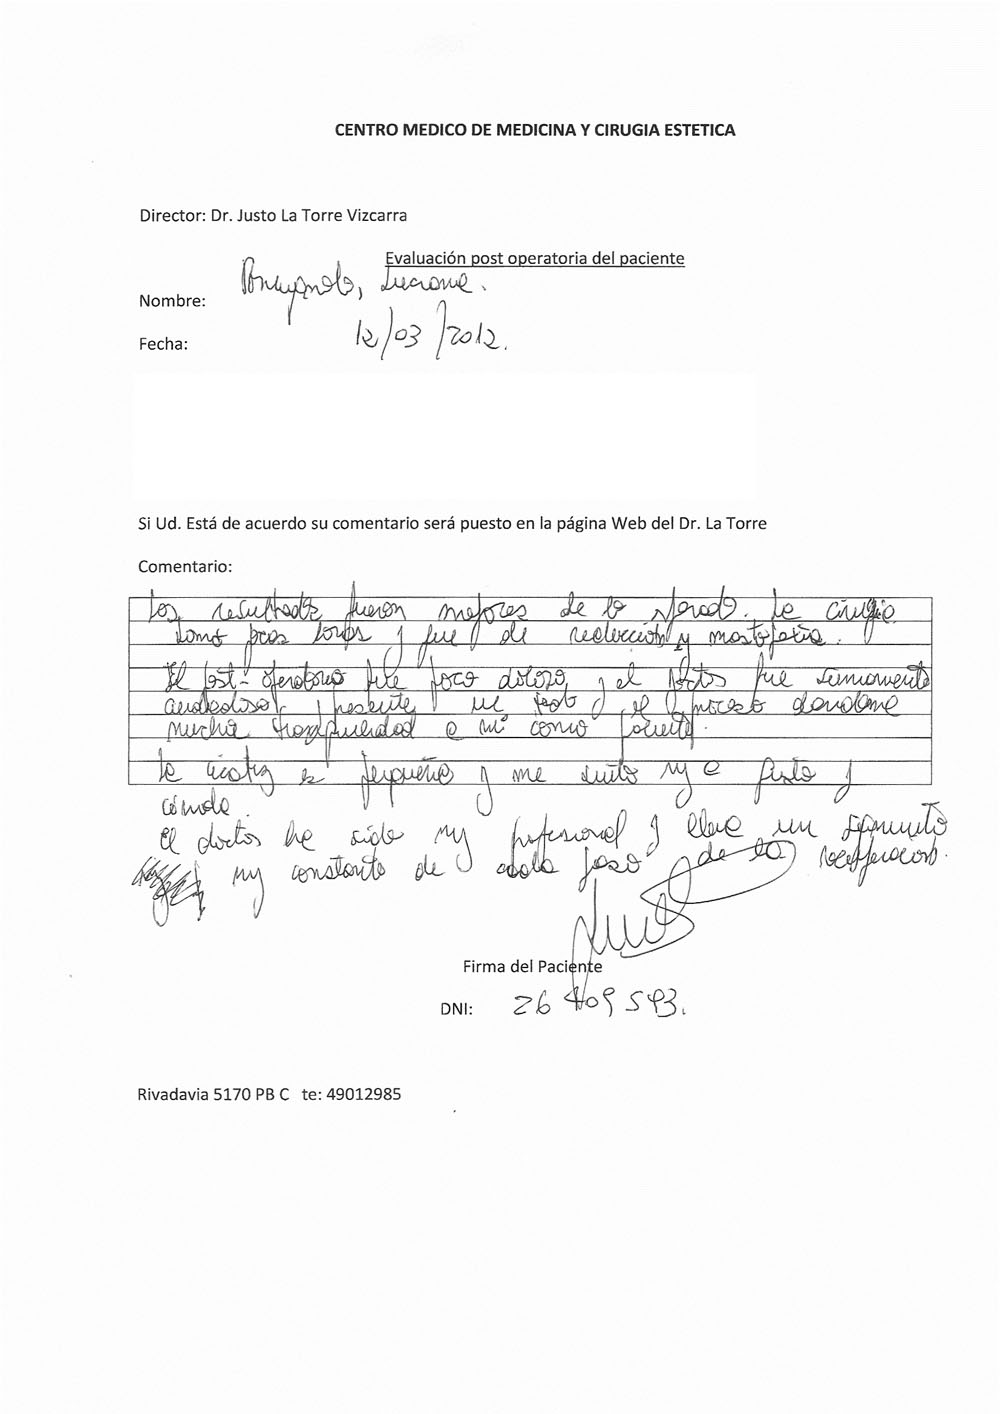 CENTRO MEDICO DE MEDICINA Y CIRUGIA ESTETICA
Director: Dr. Justo La Torre Vizcarra
Evaluación post operatoria del paciente
Nombre:
Fecha: 12/03/2012.
Si Ud. Está de acuerdo su comentario será puesto en la página Web del Dr. La Torre
Comentario:
Los resultados fueron mejores de lo esperado. La cirugía
tomó pocas horas y fue de reducción y mastopexia.
El post-operatorio fue poco doloroso y el doctor fue sumamente
cuidadoso, presente en todo el proceso dandome
mucha tranquilidad a mí como paciente.
La cicatriz es pequeña y me siento muy a gusto y
cómoda.
El doctor ha sido muy profesional y lleva un seguimiento
muy constante de cada paso de la recuperación.
Firma del Paciente
DNI: 26 409 593.
Rivadavia 5170 PB C te: 49012985